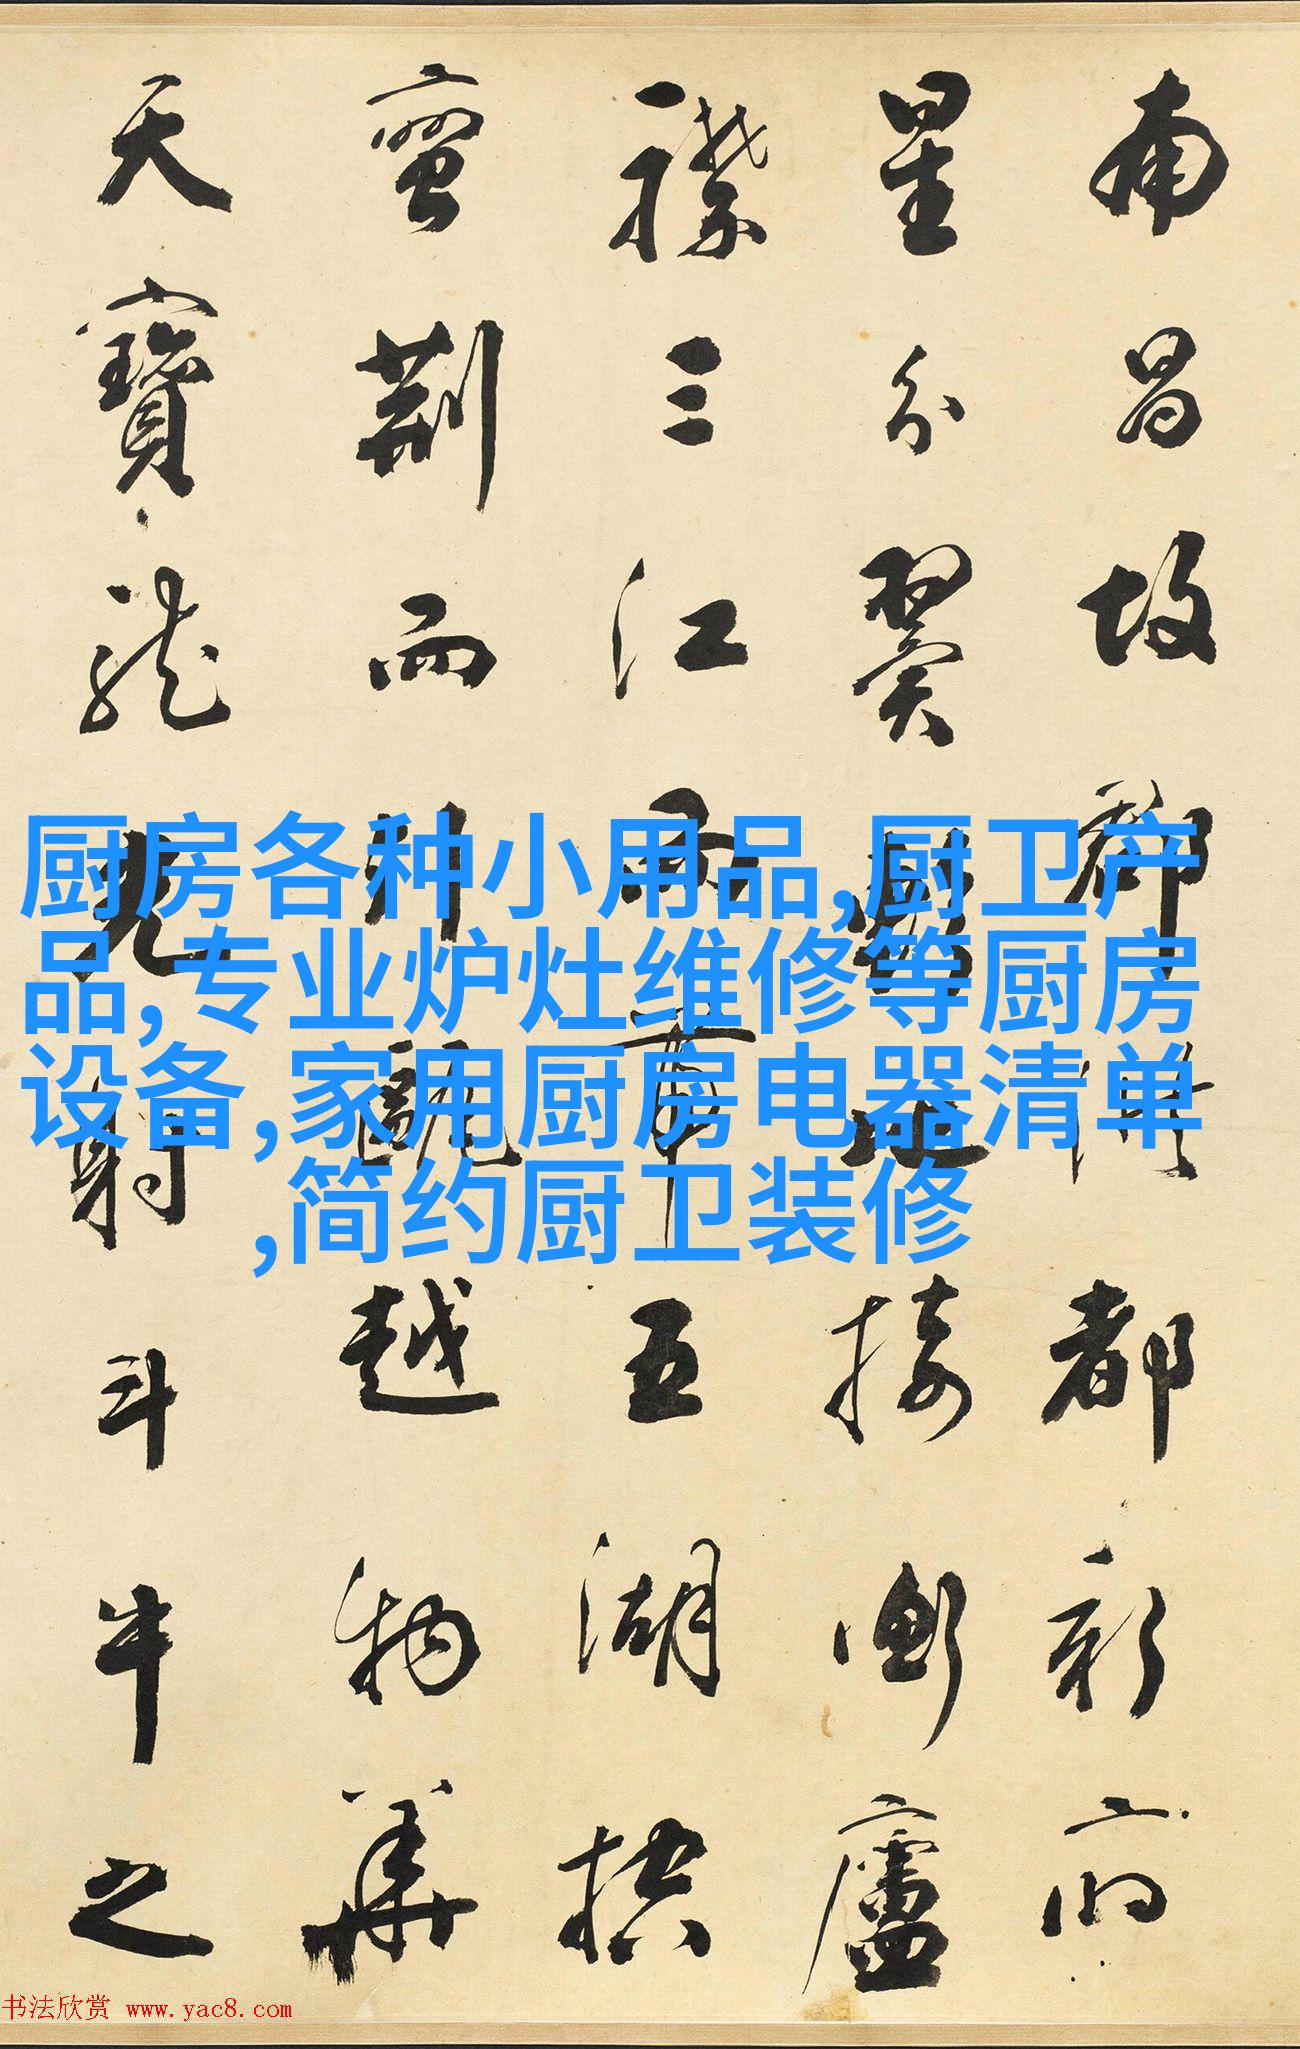 南昌故郡洪都新府
星分翼軫地接衡廬
襟三江而帶五湖控
蠻荊而引甌越物華
天寶龍光射斗牛之
厨房各种小用品,厨卫产
品,专业炉灶维修等厨房
设备,家用厨房电器清单
,简约厨卫装修
书法欣赏 www.yac8.com